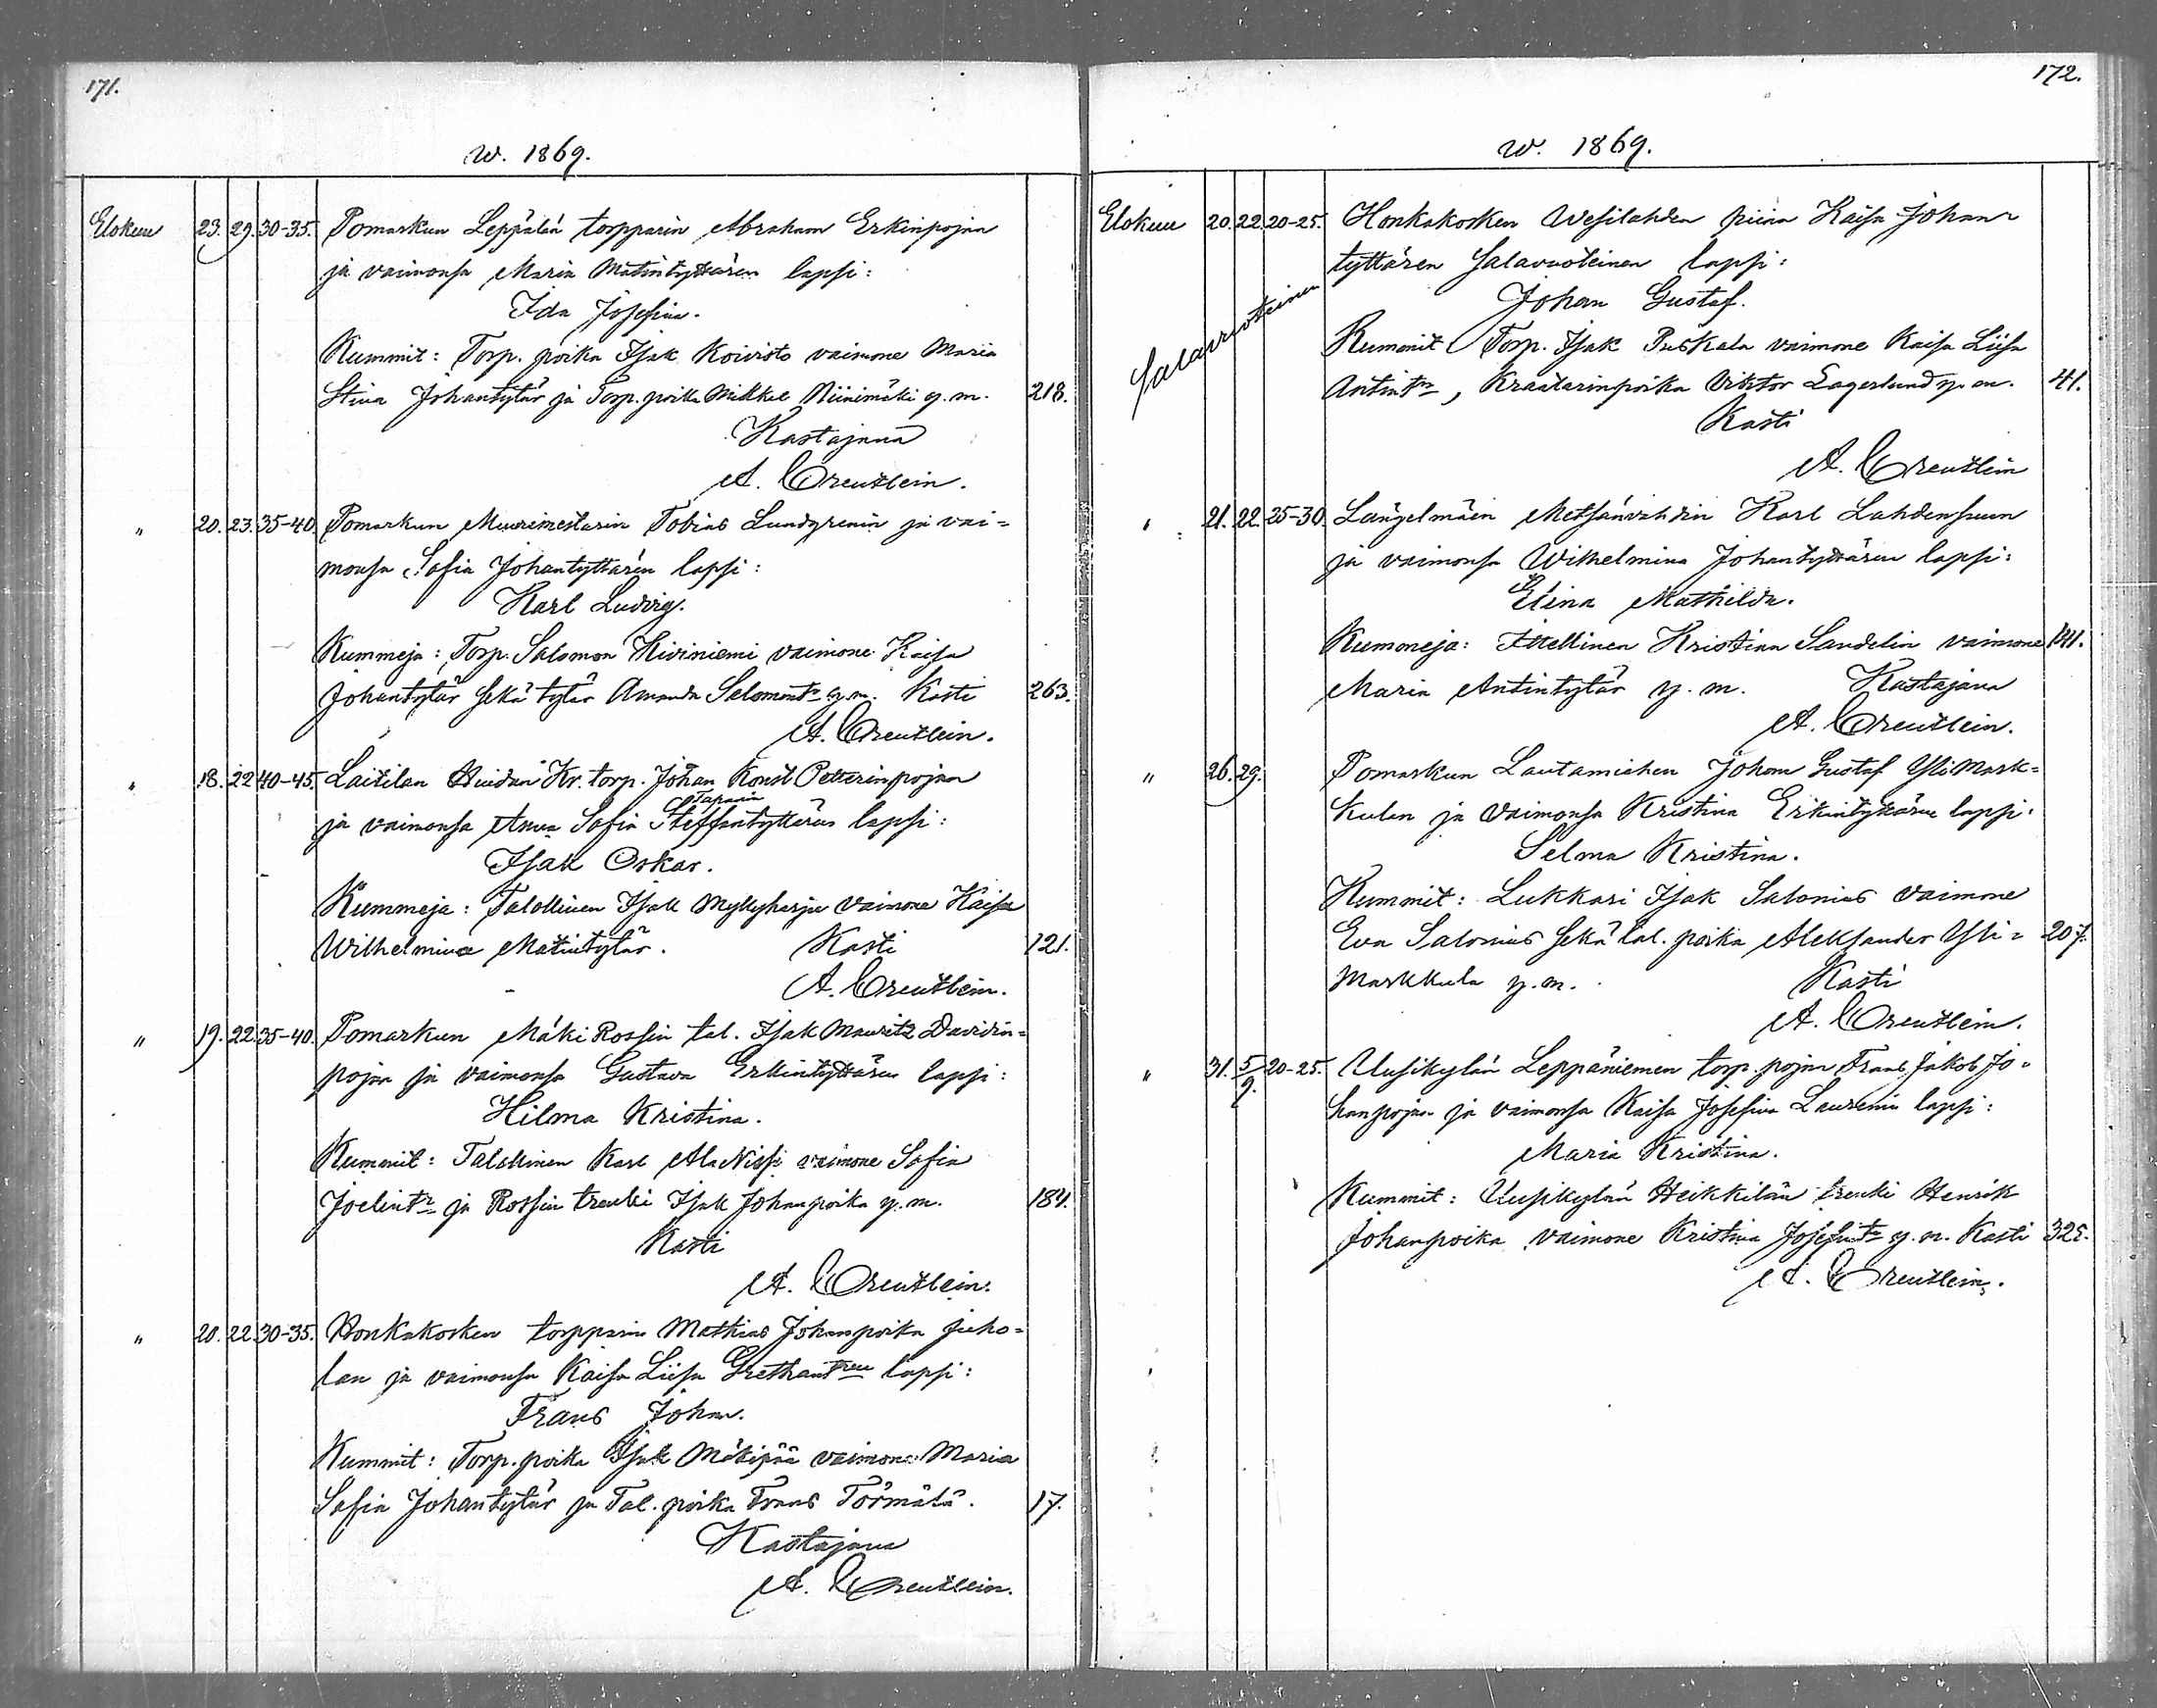 171.
w. 1869.
Elokuu 23. 29. 30-35. Pomarkun Leppälän torpparin Abraham Erkinpojan
ja vaimonsa Maria Matintyttären lapsi:
Ida Josefina.
Kummit: Torp. poika Isak Koivisto vaimone Maria
Stina Johantytär ja Torp. poika Mikkel Niinimäki y. m. 218.
Kastajana
A. Creutlein.
" 20. 23. 35-40. Pomarkun Muurimestarin Tobias Lundgrenin ja vai=
monsa Sofia Johantyttären lapsi:
Karl Ludvig.
Kummeja: Torp. Salomon Kiviniemi vaimone Kaisa
Johantytär sekä tytär Amanda Salomontr y. m. Kasti 263.
A. Creutlein.
" 18. 22 40-45. Laitilan Huidan Kr. torp. Johan Konst Petterinpojan
Taparin
ja vaimonsa Anna Sofia Steffantyttären lapsi:
Isak Oskar.
Kummeja: Talollinen Isak Myllyharju vaimone Kaisa
Wilhelmina Matintytär. Kasti 121.
A. Creutlein.
" 19. 22. 35-40. Pomarkun Mäki Rossin tal. Isak Mauritz Davidin=
pojan ja vaimonsa Gustava Erkintyttären lapsi:
Hilma Kristina.
Kummit: Talollinen Karl AlaNissi vaimone Sofia
Joelintr ja Rossin trenki Isak Johanpoika y. m. 184.
Kasti
A. Creutlein.
" 20. 22. 30-35. Honkakosken torpparin Mathias Johanpoika Juho=
lan ja vaimonsa Kaisa Liisa Grethantren lapsi:
Frans Johan.
Kummit: Torp. poika Isak Mäkipää vaimone Maria
Sofia Johantytär ja Tal. poika Frans Törmälä. 17.
Kastajana
A. Creutlein.
172.
w. 1869.
Elokuu 20. 22. 20-25. Honkakosken Wesilahden piian Kaisa Johan
tyttären salavuoteinen lapsi:
Salavuoteinen
Johan Gustaf.
Kummit Torp. Isak Puskala vaimone Kaisa Liisa
Antintr, Kraatarinpoika Viktor Lagerlund y. m. 41.
Kasti
A. Creutlein
" 21. 22. 25-30 Längelmäen Metsänvahdin Karl Lahdensuun
ja vaimonsa Wilhelmina Johantyttären lapsi:
Elina Mathilda.
Kummeja: Itellinen Kristian Sandelin vaimone 141.
Maria Antintytär y. m. Kastajana
A. Creutlein.
" 26. 29. Pomarkun Lautamiehen Johan Gustaf Yli Mark=
kulan ja vaimonsa Kristina Erkintyttären lapsi:
Selma Kristina.
Kummit: Lukkari Isak Salonius vaimone
Eva Salonius sekä tal. poika Aleksander Yli= 207.
Markkula y. m. Kasti
A. Creutlein.
" 31. 5/9. 20-25. Uusikylän Leppäniemen torp. pojan Frans Jakob Jo=
hanpojan ja vaimonsa Kaisa Josefina Laurenin lapsi:
Maria Kristina.
Kummit: Uusikylän Heikkilän trenki Henrik
Johanpoika vaimone Kristina Josefintr y. m. Kasti 325.
A. Creutlein.